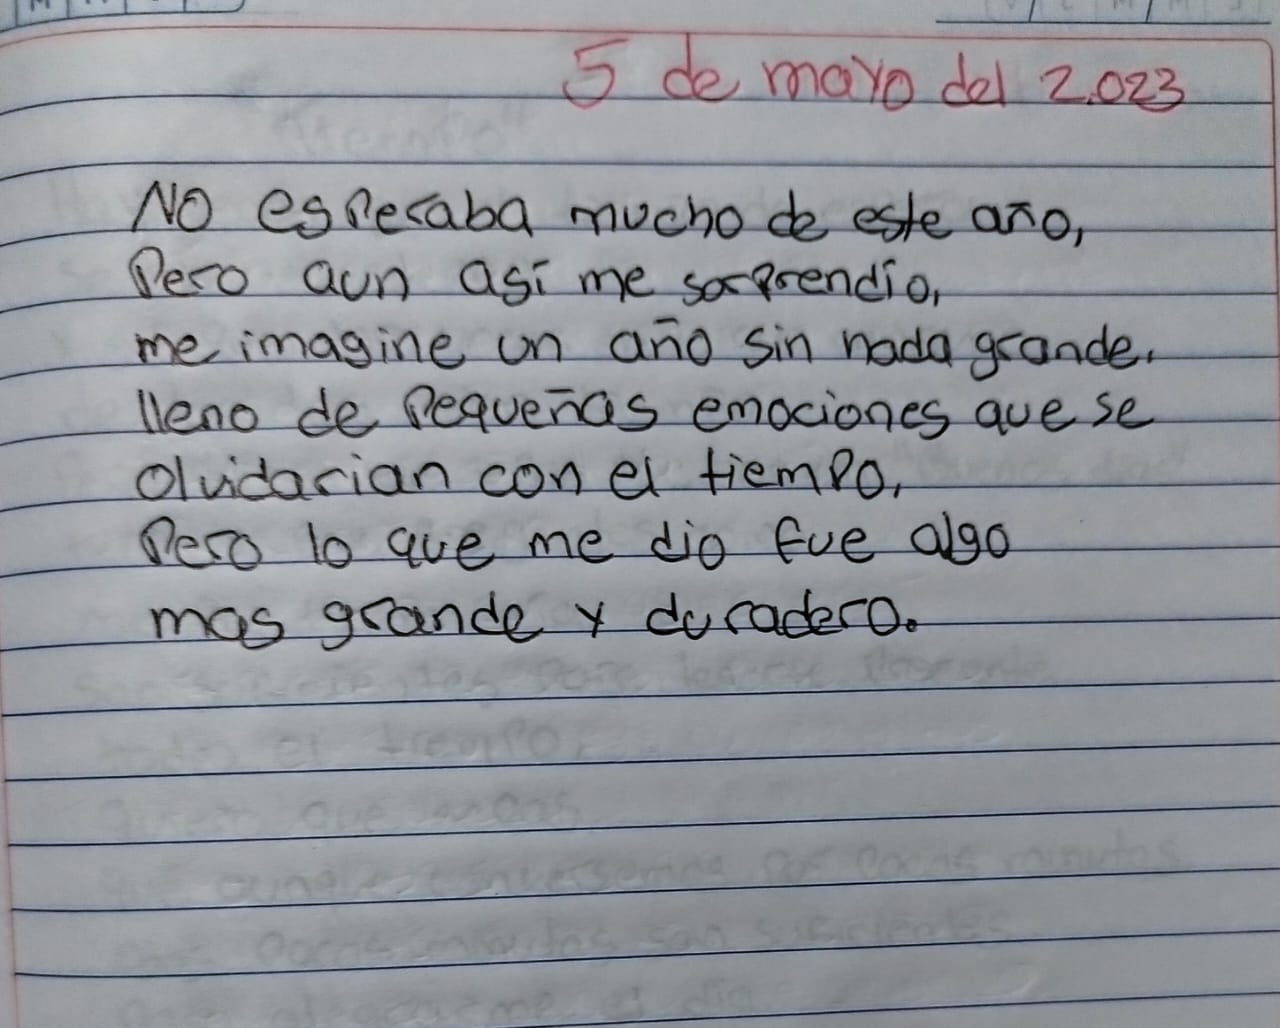 5 de mayo del 2.023
No esperaba mucho de este año,
Pero aun así me sorprendio,
me imagine un año sin nada grande.
lleno de pequeñas emociones que se
olvidarian con el tiempo,
Pero lo que me dio fue algo
mas grande y duradero.